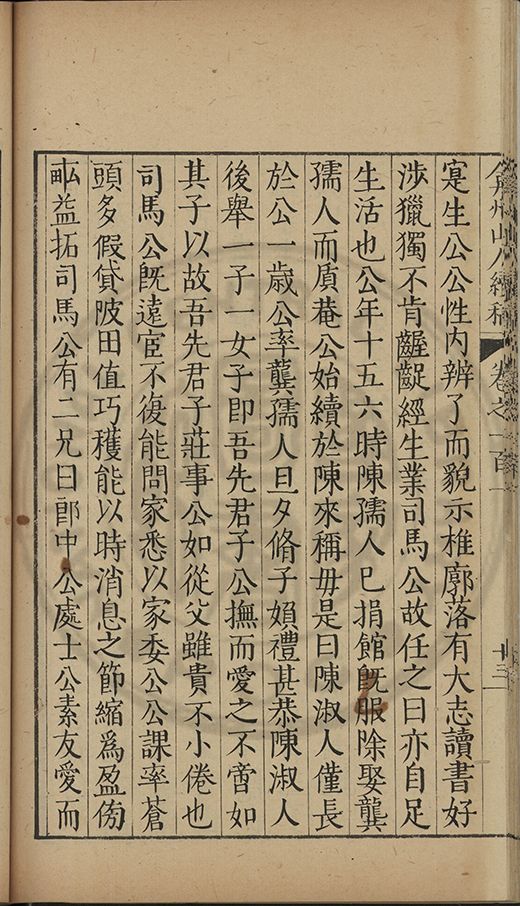 弇州山人續稿 卷之一百
寔生公公性内辨了而貌示椎廓落有大志讀書好
涉獵獨不肯齷齪經生業司馬公故任之曰亦自足
生活也公年十五六時陳孺人巳捐館旣服除娶龔
孺人而質菴公始續於陳來稱毋是曰陳淑人僅長
於公一歲公率龔孺人旦夕脩子婦禮甚恭陳淑人
後舉一子一女子即吾先君子公撫而愛之不啻如
其子以故吾先君子莊事公如從父雖貴不小倦也
司馬公旣遠宦不復能問家悉以家委公公課率蒼
頭多假貸陂田值巧穫能以時消息之節縮爲盈傍
畝益拓司馬公有二兄曰郎中公處士公素友愛而